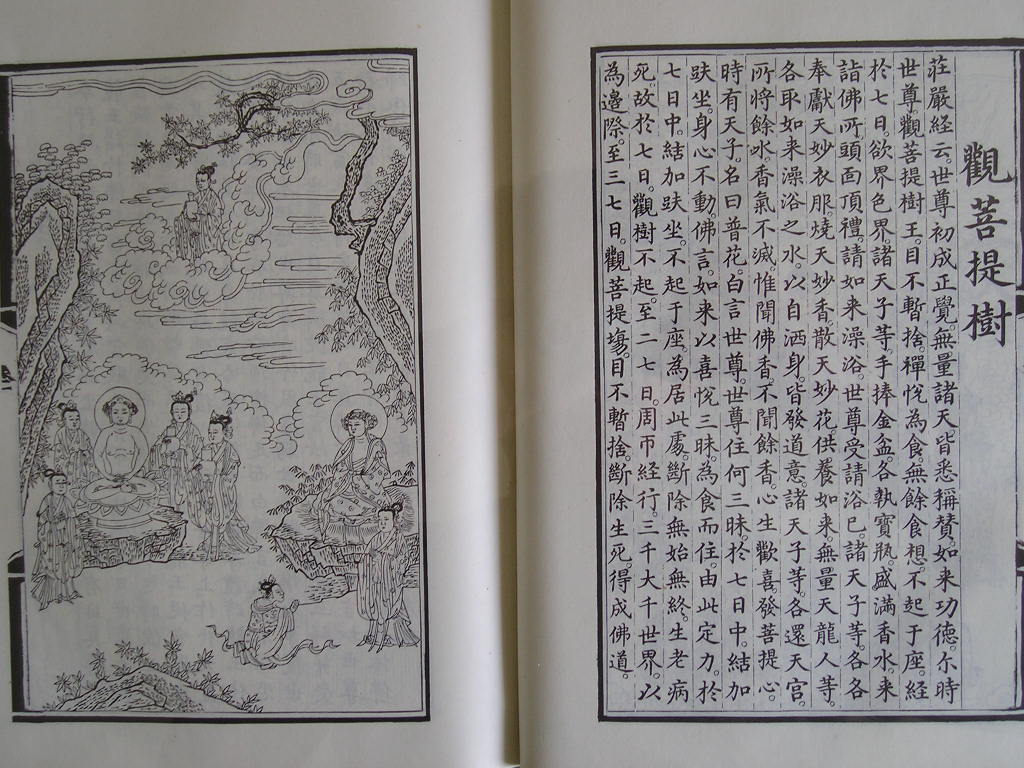 觀菩提樹
莊嚴経云。世尊初成正覺。無量諸天。皆悉稱賛。如来功德。尒時
世尊。觀菩提樹王。目不暫捨。禪悅為食。無餘食想。不起于座。経
於七日。欲界色界諸天子等。手捧金盆。各執寶瓶。盛滿香水。来
詣佛所。頭面頂禮。請如来澡浴。世尊受請浴已。諸天子等。各各
奉獻天妙衣服。燒天妙香。散天妙花。供養如来。無量天龍人等。
各取如来澡浴之水。以自洒身。皆發道意。諸天子等。各還天宫。
所將餘水。香氣不滅。惟聞佛香。不聞餘香。心生歡喜。發菩提心。
時有天子。名曰普花。白言世尊。世尊住何三昧。於七日中。結加
趺坐。身心不動。佛言。如来以喜悅三昧。為食而住。由此定力。於
七日中。結加趺坐。不起于座。為居此處。斷除無始無終。生老病
死。故於七日。觀樹不起。至二七日。周帀経行。三千大千世界。以
為邊際。至三七日。觀菩提場。目不暫捨。斷除生死。得成佛道。